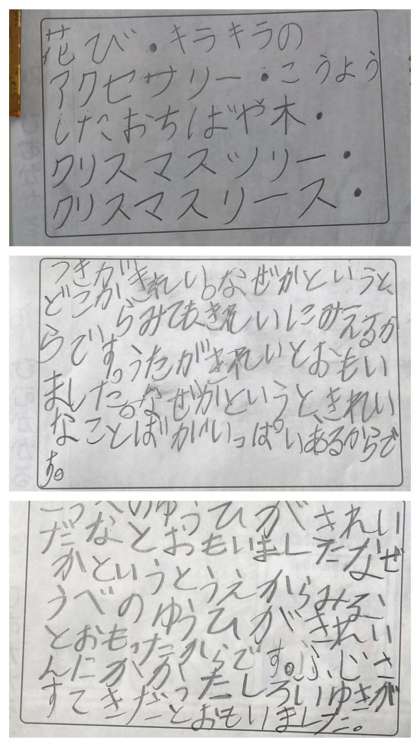 花び・キラキラの
アクセサリー・こうよう
したおちばや木・
クリスマスツリー・
クリスマスリース・
つきがきれい。なぜかというと、
どこからみても、きれいにみえるか
らです。うたがきれいとおもい
ました。なぜかというと、きれい
なことばがいっぱいあるからで
す。
こうべのゆうひがきれい
だなとおもいましたなぜ
かというとうえからみる、
うべのゆうひがきれい
とおもったからです。ふじさ
んにかかったしろいゆきが
すてきだとおもいました。